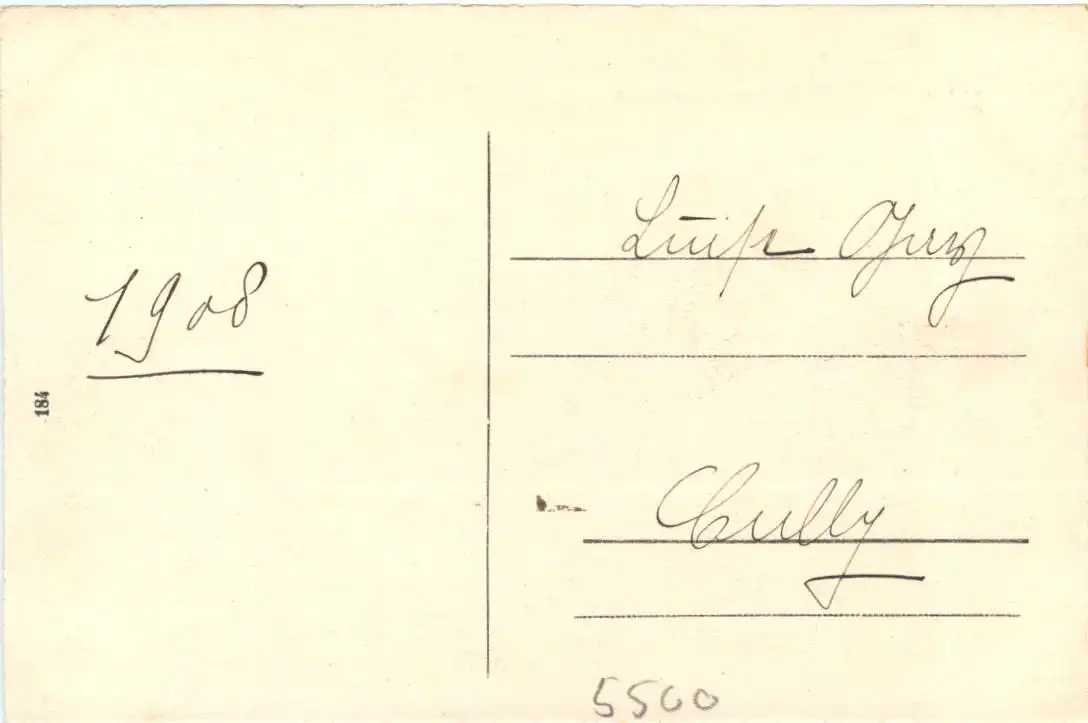 Luise
1908
184
Cully
5500